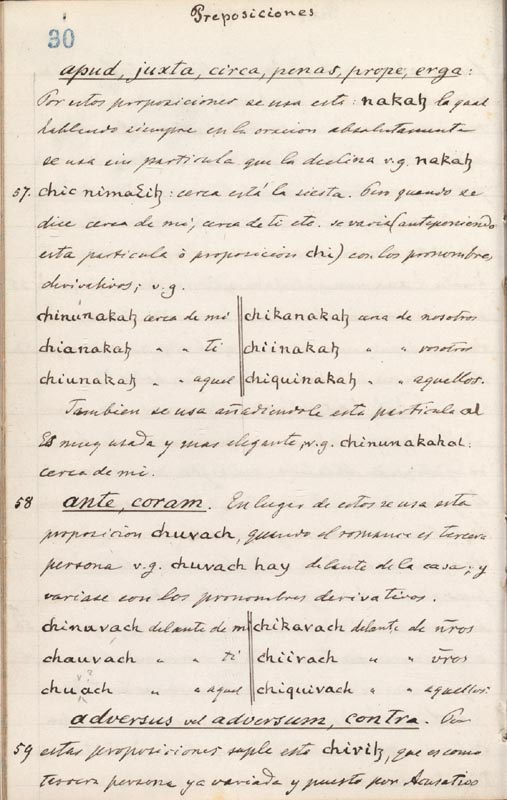 Preposiciones
30
apud, juxta, circa, penas, prope, erga:
Por estos proposiciones se usa esta: nakaꜩ la qual
hablendo siempre en la oracion absolutamente
se usa sin particula que la declina v.g. nakaꜩ
57. chic nimaꜪiꜩ: cerca está la siesta. Pero quando se
dice cerca de mi, cerca de ti etc. se varia (anteponiendo
esta particula ò proposicion chi) con los pronombres
derivativos; v.g.
chinunakaꜩ cerca de mi chikanakaꜩ cerca de nosotros
chianakaꜩ " " ti chiinakaꜩ " " vosotros
chiunakaꜩ " " aquel chiquinakaꜩ " " aquellos.
Tambien se usa añadiendole esta particula al
Es muy usada y mas elegante, v.g. chinunakaꜩal:
cerca de mi.
58 ante, coram. En lugar de estos se usa esta
proposicion chuvach, quando el romance es tercera
persona v.g. chuvach hay delante de la casa; y
variase con los pronombres derivativos.
chinuvach delante de mi chikavach delante de nr̄os
chauvach " " ti chiivach " " vr̄os
chuach " " aquel chiquivach " " aquellos.
v?
adversus vel adversum, contra. Por
59 estas proposiciones suple esta chiviꜩ, que es como
tercera persona ya variada y puesto por Acusatios